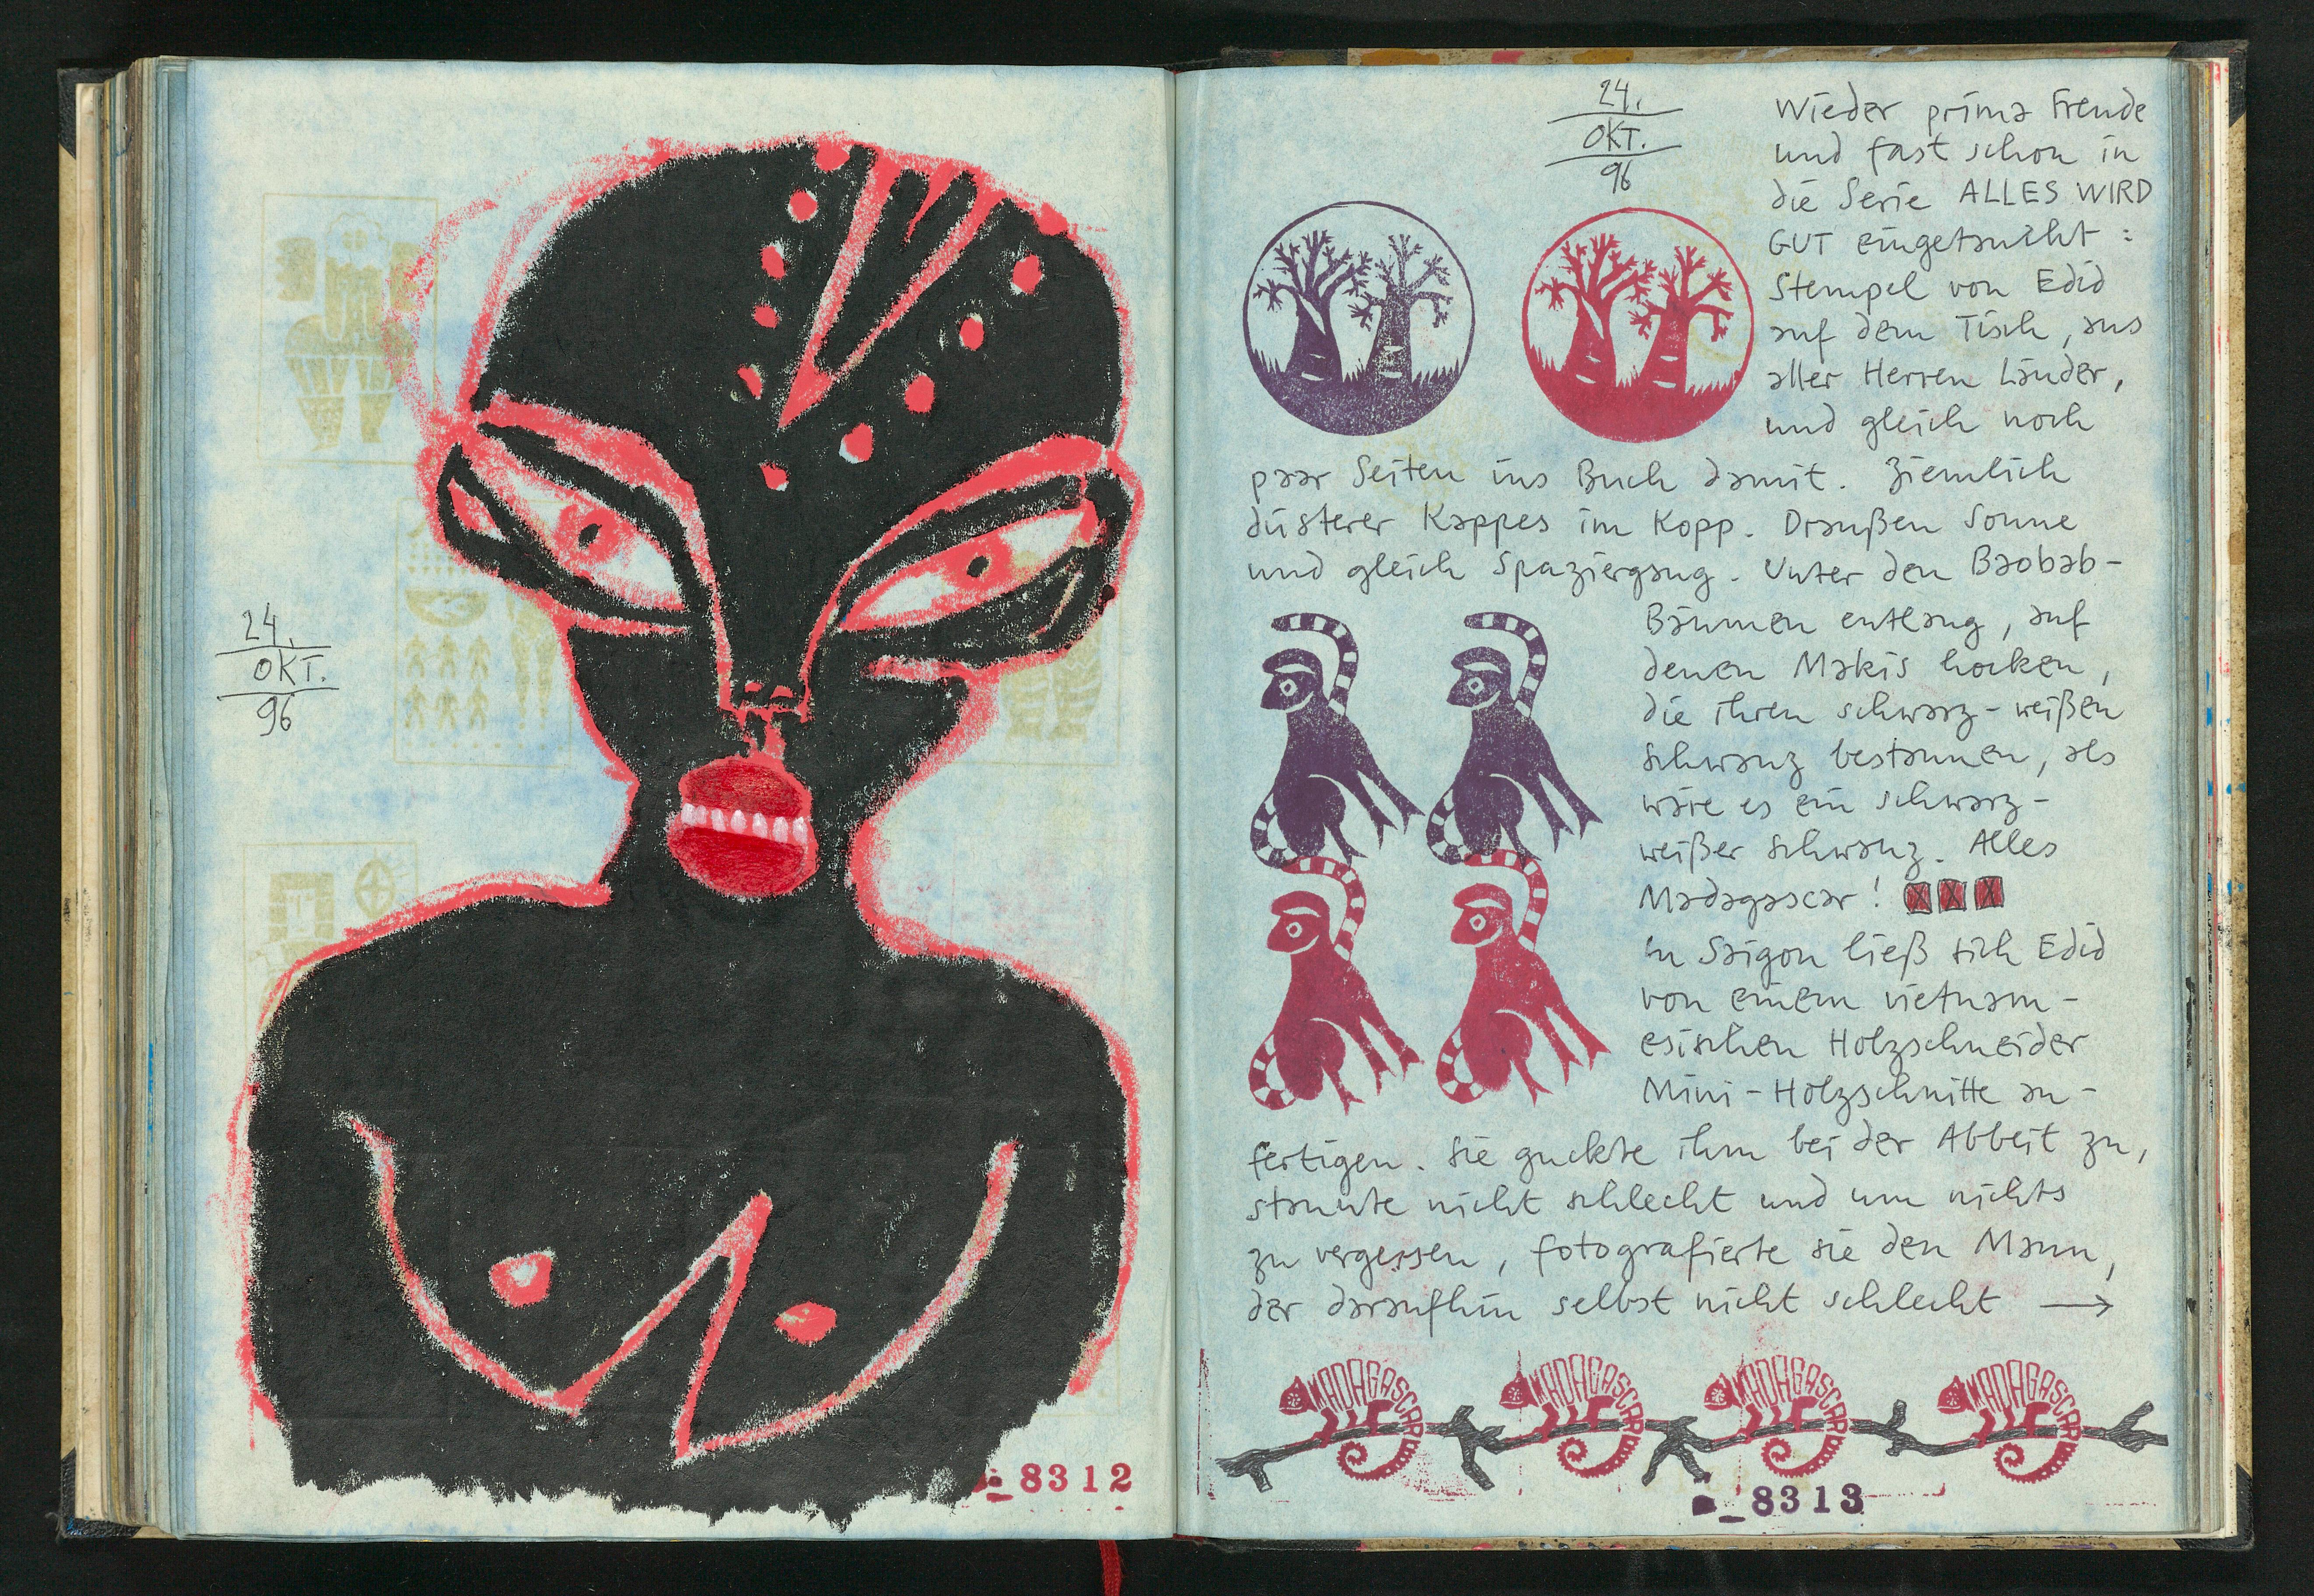 24.
OKT.
96
8312
24.
OKT.
96
Wieder prima Freude
und fast schon in
die Serie ALLES WIRD
GUT eingetaucht :
Stempel von Edid
auf dem Tisch, aus
aller Herren Länder,
und gleich noch
paar Seiten ins Buch damit. Ziemlich
düsterer Kappes im Kopp. Draußen Sonne
und gleich Spaziergang. Unter den Baobab-
Bäumen entlang, auf
denen Makis hocken,
die ihren schwarz-weißen
Schwanz bestaunen, als
wäre es ein schwarz-
weißer Schwanz. Alles
Madagascar! XXX
In Saigon ließ sich Edid
von einem vietnam-
esischen Holzschneider
Mini-Holzschnitte an-
fertigen. Sie guckte ihm bei der Abbeit zu,
staunte nicht schlecht und um nichts
zu vergessen, fotografierte sie den Mann,
der daraufhin selbst nicht schlecht →
MADAGASCAR MADAGASCAR MADAGASCAR MADAGASCAR
8313